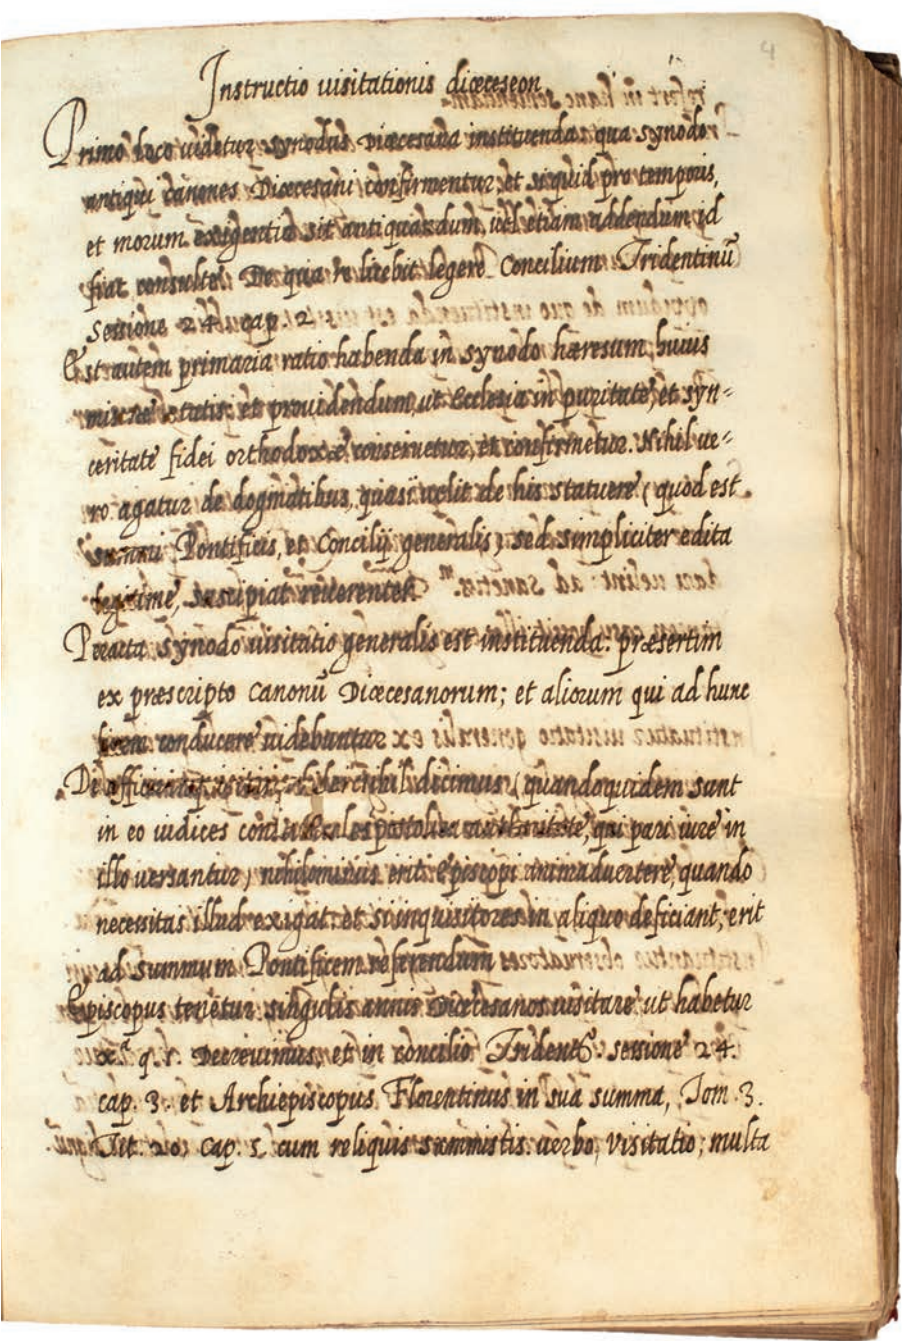 4
Instructio uisitationis diœceseon
Primo loco uidetur synodus Diœcesana instituenda: qua synodo
antiqui canones Diœcesani confirmentur, et si quid pro temporis,
et morum exigentia sit antiquandum, uel etiam addendum id
fiat consulte. De qua re licebit legere Concilium Tridentinū
Sessione 24 cap. 2.
Est autem primaria ratio habenda in synodo hæresum huius
ætatis: et prouidendum, ut Ecclesia in puritate, et syn=
ceritate fidei orthodoxæ conseruetur, et confirmetur. Nihil ue=
ro agatur de dogmatibus, quasi uelit de his statuere (quod est
summi Pontificis, et Concilij generalis) sed simpliciter edita
legitime, suscipiat reuerenter.
Peracta synodo uisitatio generalis est instituenda: præsertim
ex præscripto Canonū Diœcesanorum; et aliorum qui ad hunc
conducere uidebuntur
De nihil dicimus (quandoquidem sunt
in eo iudices authoritate, qui pari iure in
illo uersantur) nihilominus erit Episcopi animaduertere, quando
necessitas illud exigat: et si inquisitores in aliquo deficiant, erit
ad summum Pontificem referendum
Episcopus tenetur singulis annis Diœcesanos uisitare ut habetur
xª q. 1. Decreuimus, et in concilio Trident. sessione 24.
cap. 3. et Archiepiscopus Florentinus in sua summa, Tom 3.
Tit. 20. cap. 5. cum reliquis summistis. uerbo, visitatio; multa